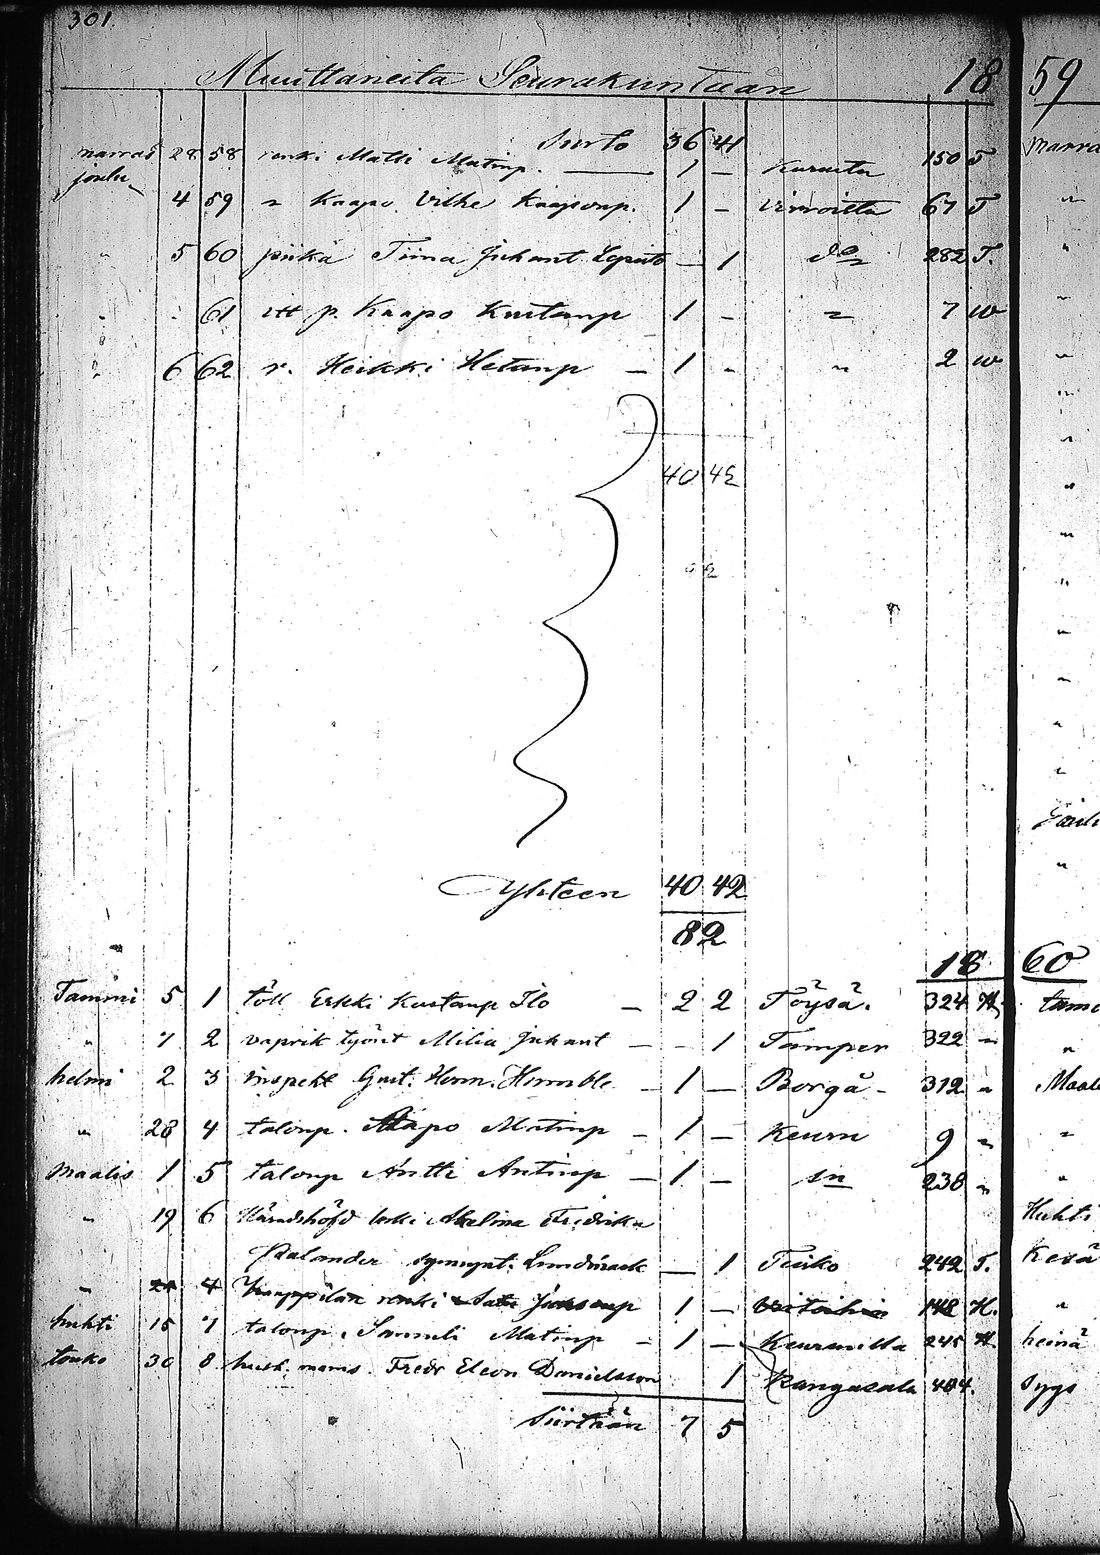 301.
Muuttaneita Seurakuntaan 18 59
Siirto 36 41
marras 28 58 renki Matti Matinp. 1 — Kuruita 150 T
joulu 4 59 " Kaapo Vilhe Kaaponp. 1 - Virroilta 67 T
" 5 60 piika Tiina Juhant Lepistö — 1 do 282 T.
" " 61 itt p. Kaapo Kustanp 1 - " 7 w
" 6 62 r. Heikki Hetanp — 1 - " 2 w
40 42
Yhteen 40 42
82
18 60
Tammi 5 1 töll Erkki Kustanp Ilo — 2 2 Töysä. 324 H.
" 7 2 vaprik työnt Milia Juhant — - 1 Tamper 322 "
helmi 2 3 inspekt Gust. Herm. — 1 — Borgå - 312 "
" 28 4 talonp. Aapo Matinp — 1 — Keuru 9 "
Maalis 1 5 talonp Antti Antinp — 1 — 238 "
" 19 6 Häradshöfd leski Fredrika
Palander synnynt. — 1 Teisko 242 T.
" 4 renki 1 — 148 H.
huhti 15 7 talonp. Samuli Matinp — 1 — Keuruulla 245 H.
touko 30 8 hush. mams. Fredr Eleon Danielsson 1 Kangasala 404.
Siirtään 7 5
marra
Joulu
tammi
Maali
Huhti
Kesä
heinä
Syys